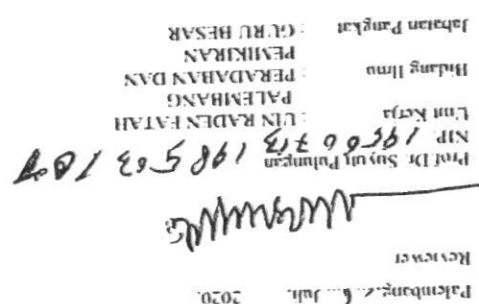 Palembang, 6 Juli 2020.
Reviewer
Prof Dr Suyuti Pulungan
NIP 19560713 198503 1 001
Unit Kerja : UIN RADEN FATAH
PALEMBANG
Bidang Ilmu : PERADABAN DAN
PEMIKIRAN
Jabatan Pangkat : GURU BESAR